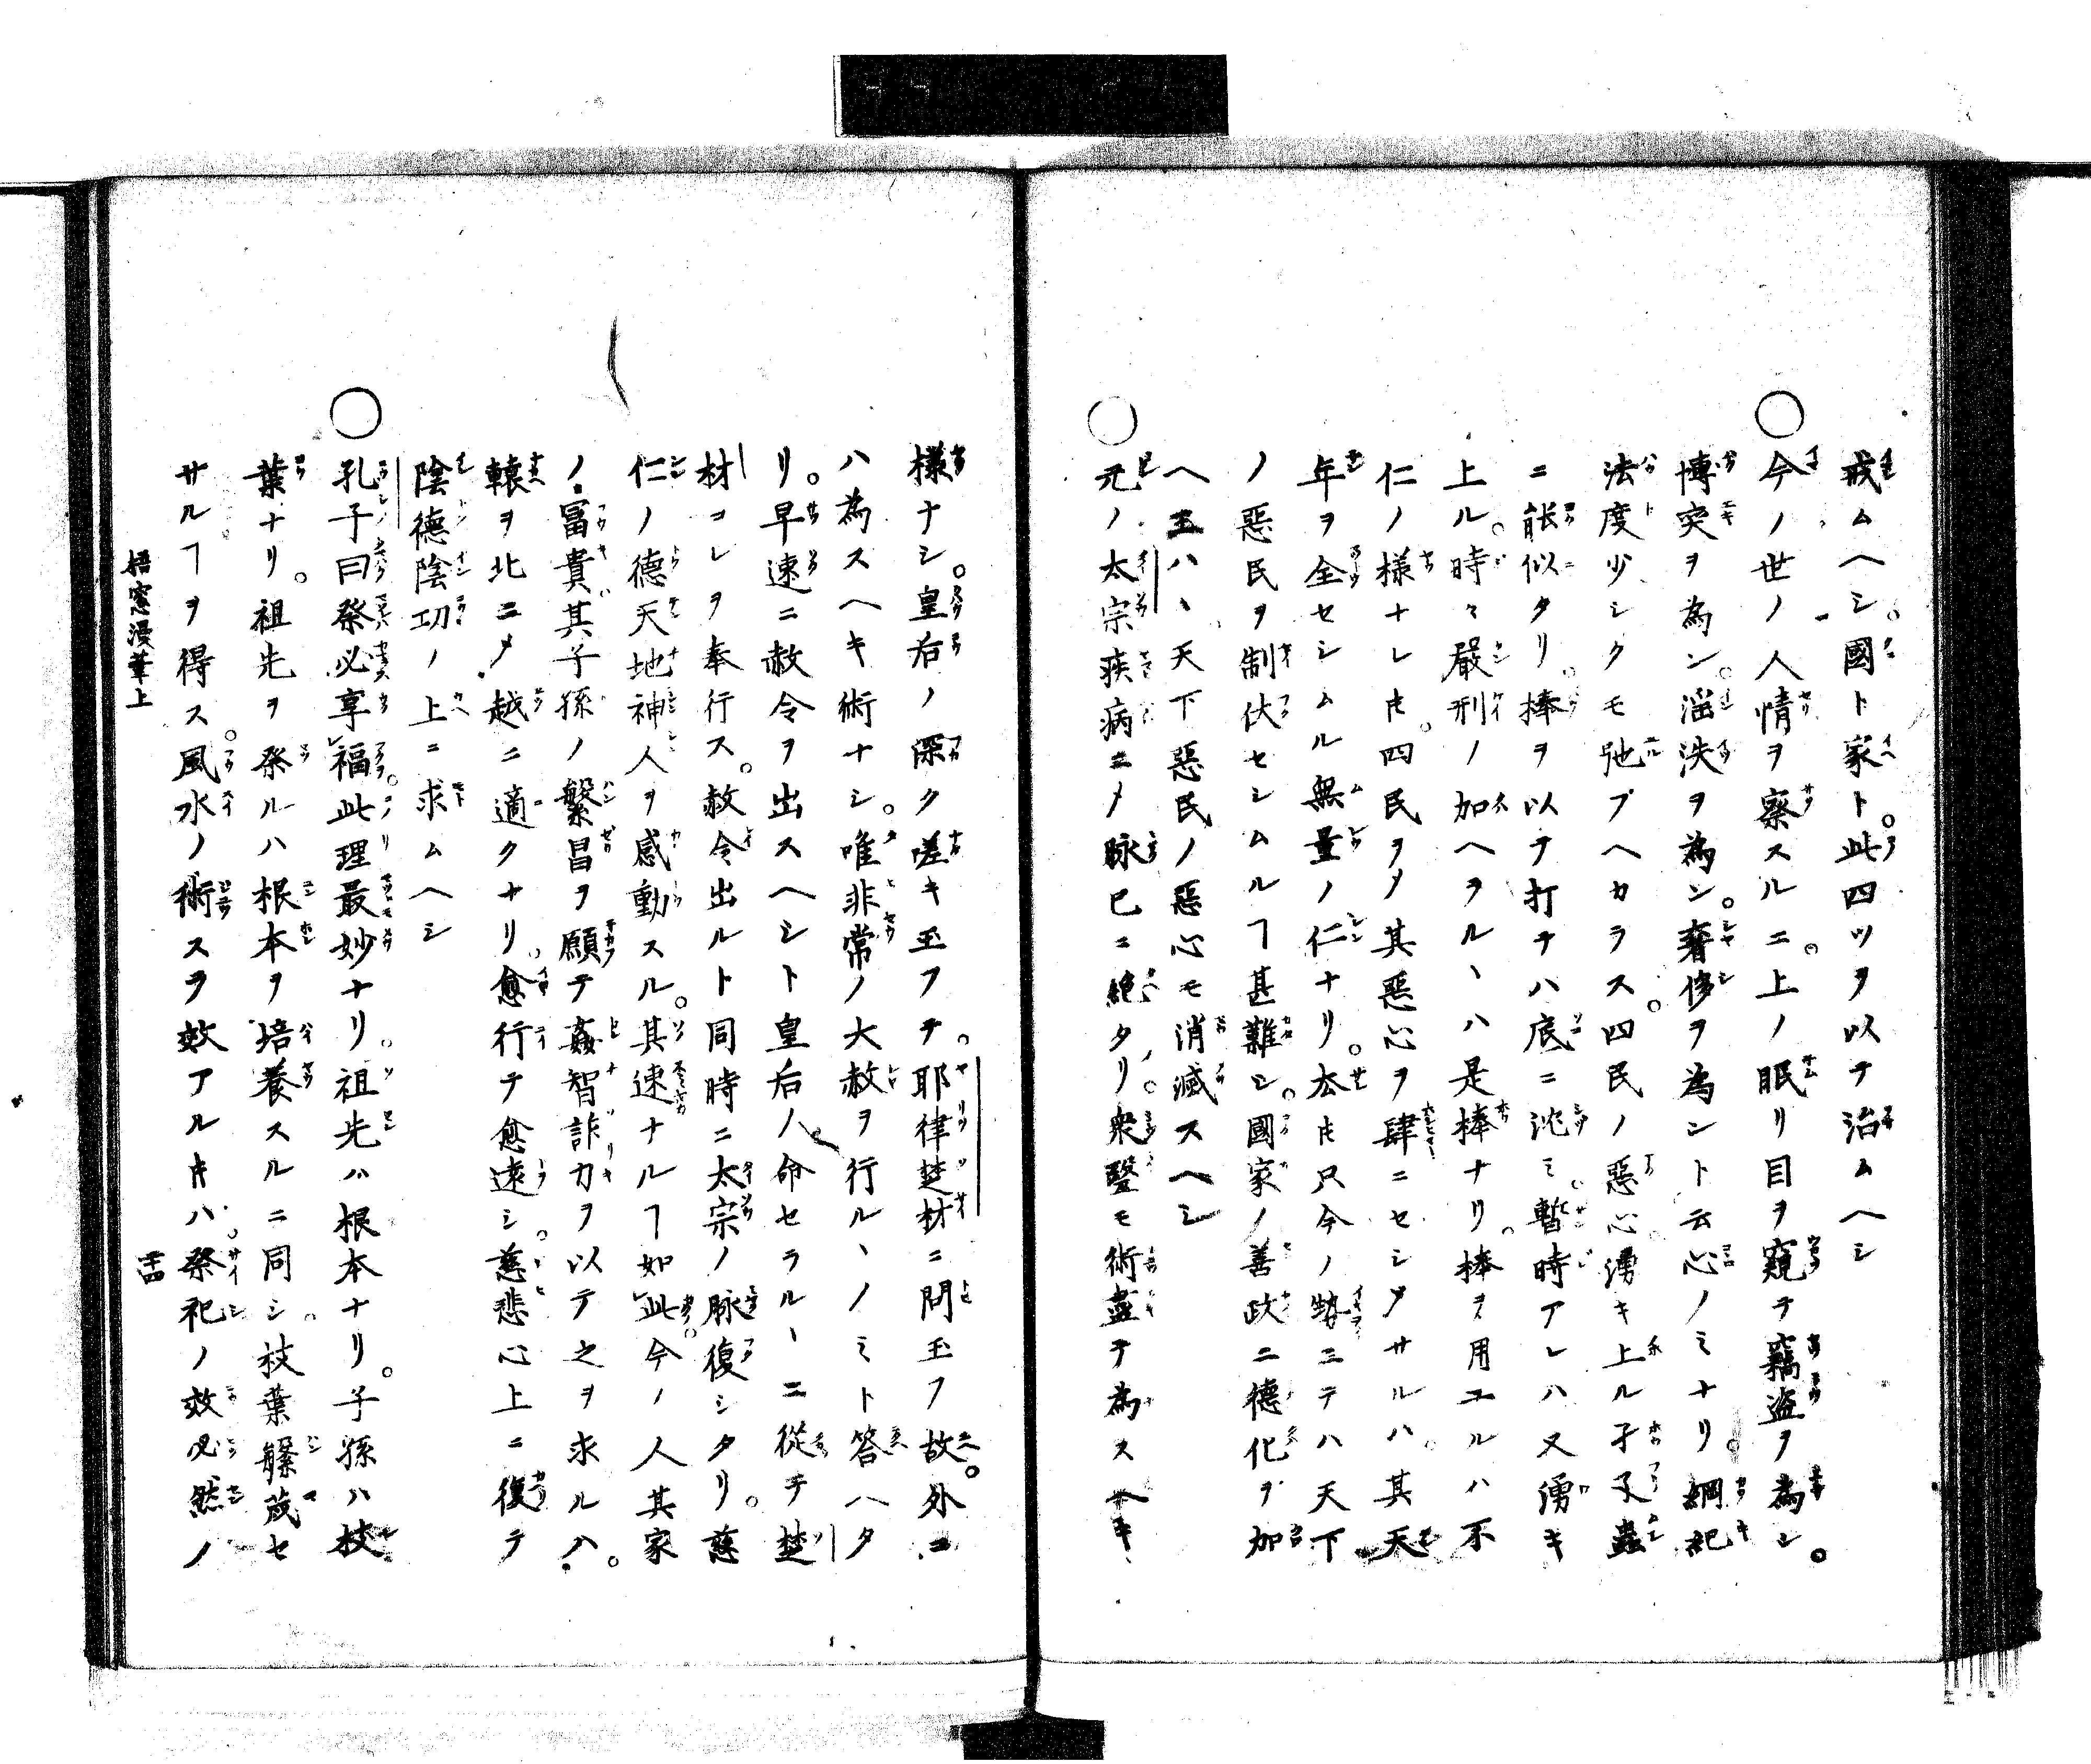 戒ムヘシ。國ト家ト。此四ツヲ以テ治ムヘシ
○今ノ世ノ人情ヲ察スルニ。上ノ眠リ目ヲ窺テ竊盗ヲ為シ。
博奕ヲ為ン。淫泆ヲ為ン。奢侈ヲ為ント云心ノミナリ。綱紀
法度少シクモ弛ブヘカラス。四民ノ惡心湧キ上ル孑孒蟲
ニ能似タリ。棒ヲ以テ打チハ底ニ沈ミ。暫時アレハ又湧キ
上ル。時々嚴刑ノ加ヘヲルヽハ是棒ナリ。棒ヲ用ユルハ不
仁ノ様ナレ𪜈。四民ヲノ其惡心ヲ肆ニセシメサルハ。其天
年ヲ全セシムル無量ノ仁ナリ。厺𪜈只今ノ勢ニテハ天下
ノ惡民ヲ制伏セシムルヿ甚難シ。國家ノ善政ニ德化ヲ加
ヘ玉ハヽ天下惡民ノ惡心モ消滅スヘシ
○元ノ太宗疾病ニメ脉已ニ絶タリ。衆毉モ術盡テ為スヘキ
様ナシ。皇后ノ深ク嗟キ玉フテ。耶律楚材ニ問玉フ故。外ニ
ハ為スヘキ術ナシ。唯非常ノ大赦ヲ行ルヽノミト答ヘタ
リ。早速ニ赦令ヲ出スヘシト皇后ノ命セラルヽニ從テ楚
材コレヲ奉行ス。赦令出ルト同時ニ太宗ノ脉復シタリ。慈
仁ノ德天地神人ヲ感動スル。其速ナルヿ如此。今ノ人其家
ノ冨貴其子孫ノ繁昌ヲ願テ姦智詐力ヲ以テ之ヲ求ルハ。
轅ヲ北ニメ越ニ適クナリ。愈行テ愈遠シ。慈悲心上ニ復テ
陰德陰功ノ上ニ求ムヘシ
○孔子曰祭必享福。此理最妙ナリ。祖先ハ根本ナリ。子孫ハ枝
葉ナリ。祖先ヲ祭ルハ根本ヲ培養スルニ同シ。枝葉蘩茂セ
サルヿヲ得ス。風水ノ術スヲ效アルキハ。祭祀ノ效必然ノ
梧窓漫筆上
二十四